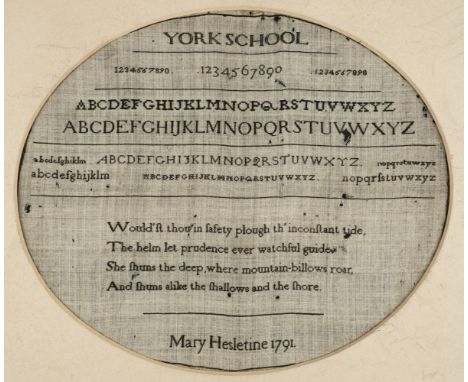 YORK SCHOOL
1234567890. 1234567890 .1234567890
ABCDEFGHIJKLMNOPQRSTUVWXYZ
ABCDEFGHIJKLMNOPQRSTUVWXYZ
abcdefghiklm ABCDEFGHIJKLMNOPQRSTUVWXYZ. nopqrſstuvwxyz
abcdefghijklm ABCDEFGHIJKLMNOPQRSTUVWXYZ. nopqrſstuvwxyz
Would'ſt thou in ſafety plough th' inconſtant tide,
The helm let prudence ever watchful guide.
She ſhuns the deep, where mountain-billows roar,
And ſhuns alike the ſhallows and the ſhore.
Mary Hesletine 1791.